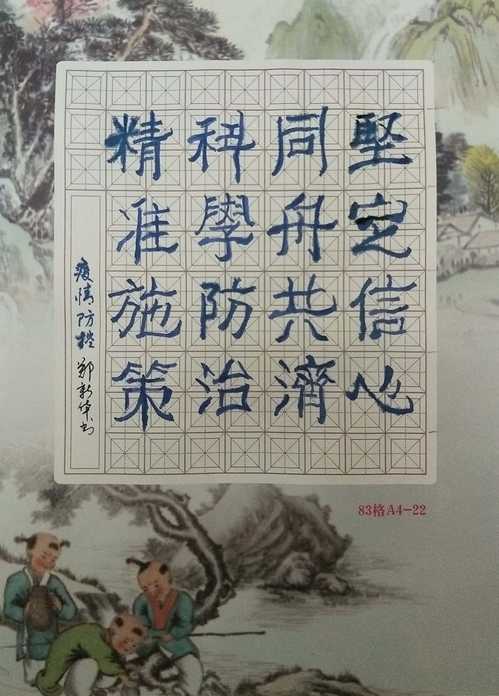 堅定信心
同舟共濟
科學防治
精准施策
疫情防控 鄭新华书
83格A4-22